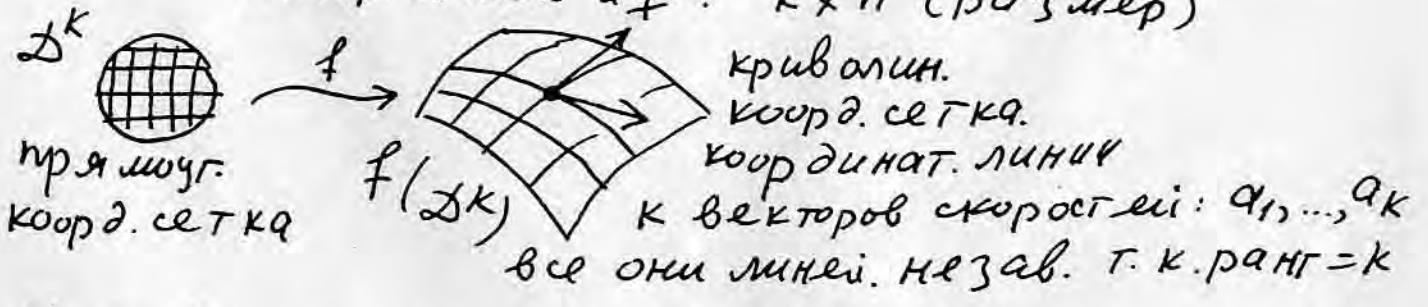 k × n (размер)
D^k
f
криволин.
коорд. сетка.
прямоуг.
коорд. сетка
f(D^k)
координат. линии
k векторов скоростей: a₁, ..., aₖ
все они линей. незав. т. к. ранг = k